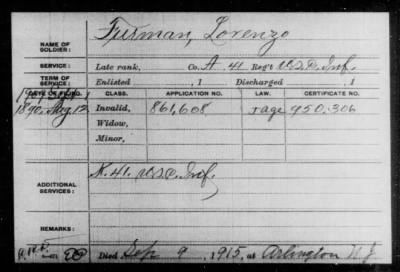 NAME OF SOLDIER: Furman, Lorenzo
SERVICE: Late rank, Co. A. 41 Reg't U.S.C. Inf.
TERM OF SERVICE: Enlisted , 1 Discharged , 1
DATE OF FILING. CLASS. APPLICATION NO. LAW. CERTIFICATE NO.
1890, Aug. 12 Invalid, 861,608 950.306
Widow,
Minor,
ADDITIONAL SERVICES: K. 41. U.S.C. Inf.
REMARKS:
Died Sep 9, 1915, at Arlington N.J.